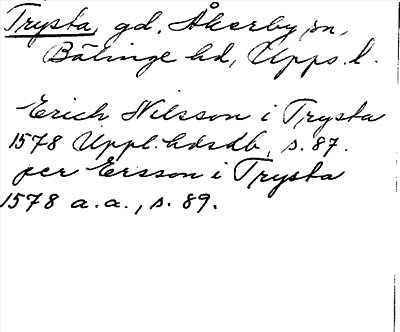 Trysta, gd, Åkerby sn,
Bälinge hd, Upps. l.
Erich Nilsson i Trysta
1578 Uppl. hdsdb, s. 87.
per Ersson i Trysta
1578 a. a., s. 89.